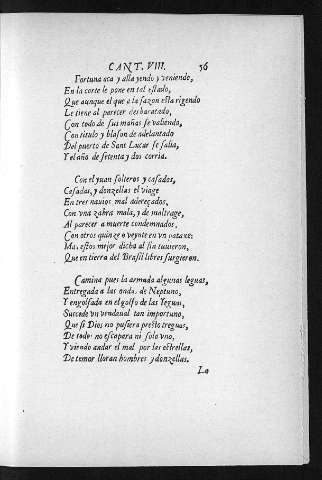 CANT. VIII. 36
Fortuna aca y alla yendo y veniendo,
En la corte le pone en tal estado,
Que aunque el que a la sazon esta rigendo
Le tiene al parecer desbaratado,
Con todo de sus mañas se valiendo,
Con titulo y blason de adelantado
Del puerto de Sant Lucar se salia,
Y el año de setenta y dos corria.
Con el yuan solteros y casados,
Casadas, y donzellas el viage
En tres nauios mal adereçados,
Con vna zabra mala, y de mal trage,
Al parecer a muerte condemnados,
Con otros quinze o veynte en vn patax:
Mas estos mejor dicha al fin tuuieron,
Que en tierra del Brasil libres surgieron.
Camina pues la armada algunas leguas,
Entregada a las ondas de Neptuno,
Y engolfada en el golfo de las Yeguas,
Succede vn vendaual tan importuno,
Que si Dios no pusiera presto treguas,
De todos no escapara ni solo vno,
Y viendo andar el mal por las estrellas,
De temor lloran hombres y donzellas.
La